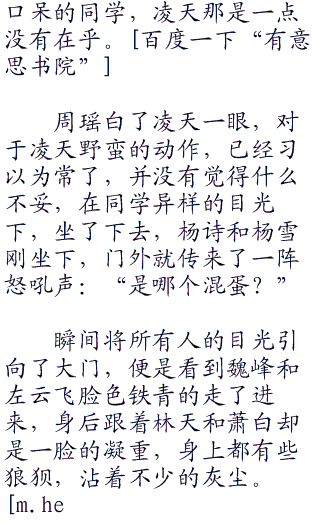 口呆的同学，凌天那是一点
没有在乎。[百度一下“有意
思书院”]
周瑶白了凌天一眼，对
于凌天野蛮的动作，已经习
以为常了，并没有觉得什么
不妥，在同学异样的目光
下，坐了下去，杨诗和杨雪
刚坐下，门外就传来了一阵
怒吼声：“是哪个混蛋？”
瞬间将所有人的目光引
向了大门，便是看到魏峰和
左云飞脸色铁青的走了进
来，身后跟着林天和萧白却
是一脸的凝重，身上都有些
狼狈，沾着不少的灰尘。
[m.he